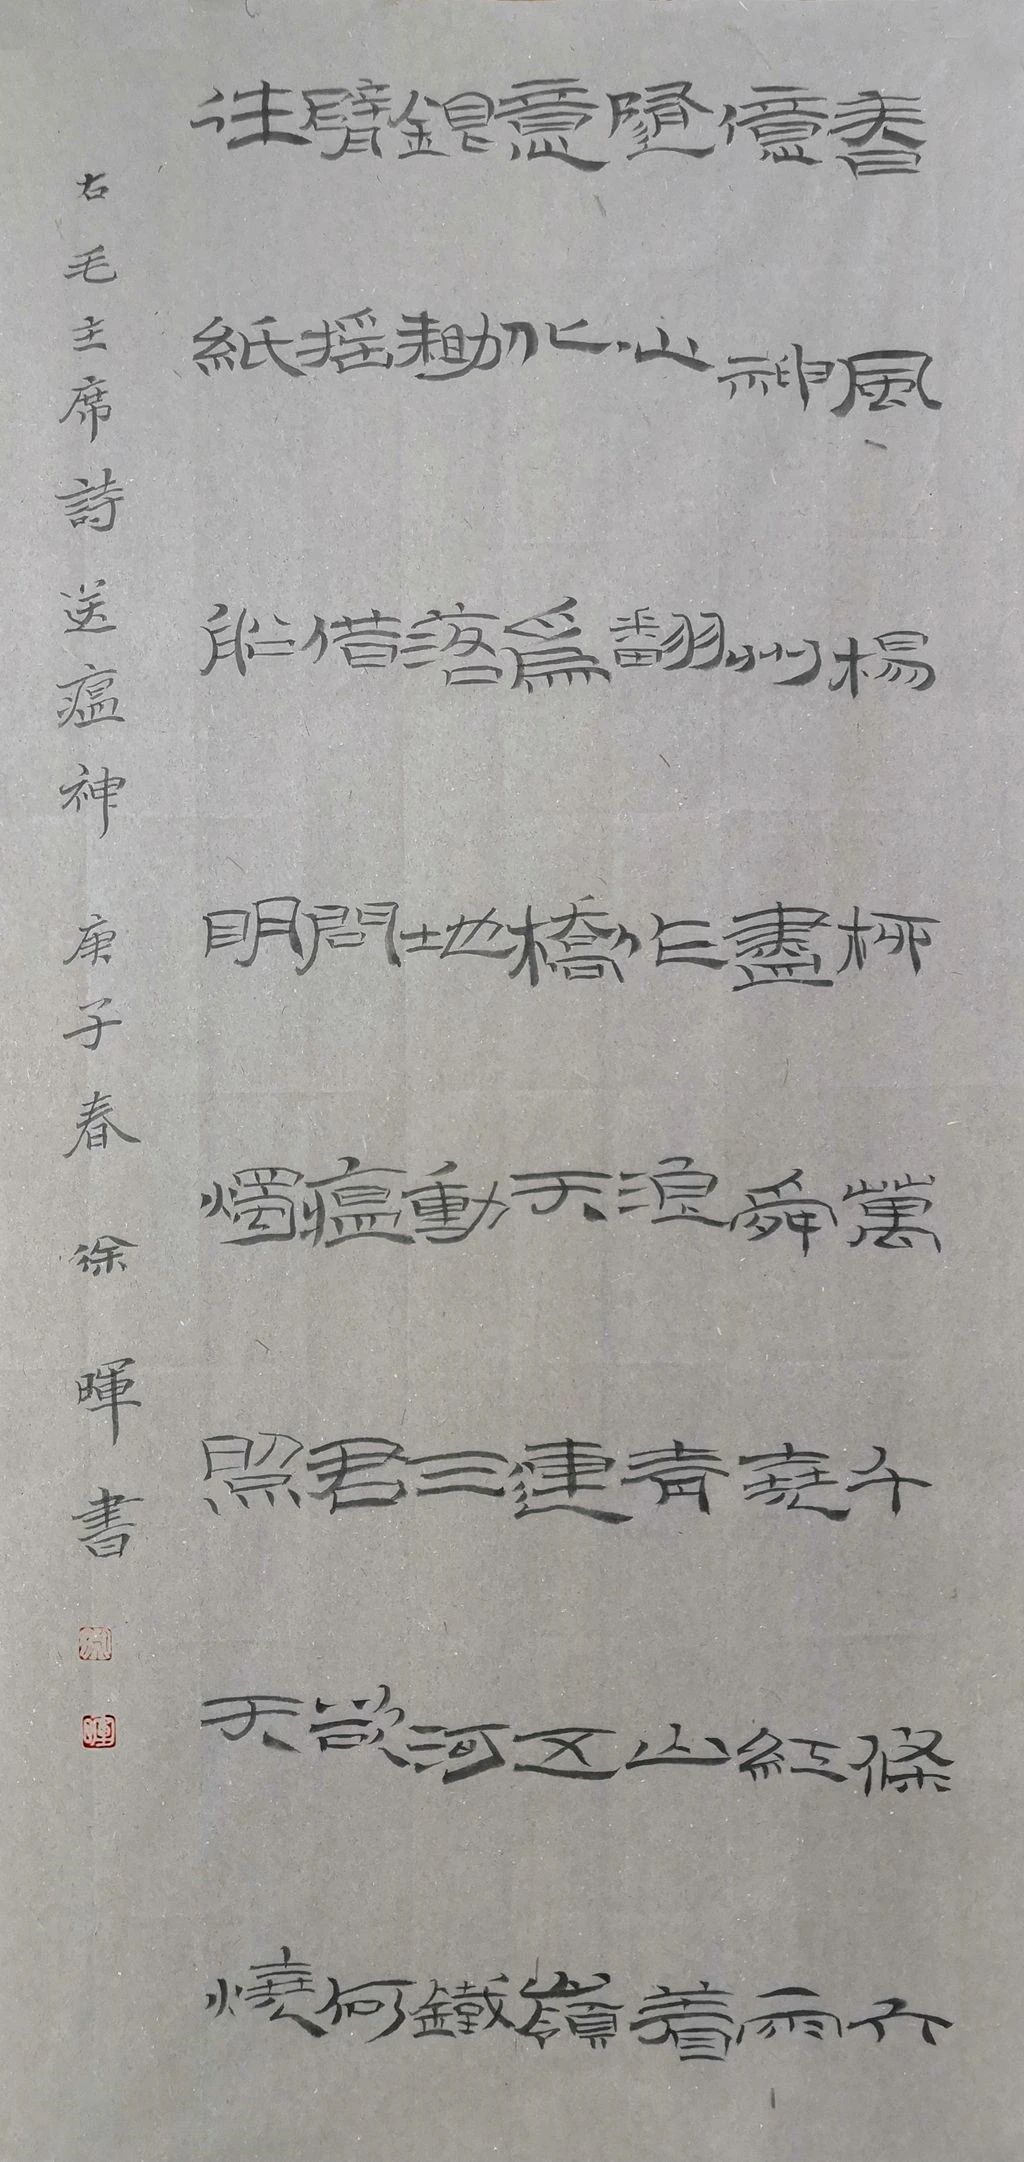 春風楊柳萬千條六
億神州盡舜堯紅雨
隨心翻作浪青山着
意化爲橋天連五嶺
銀耡落地動三河鐵
臂搖借問瘟君欲何
往紙船明燭照天燒
右毛主席詩送瘟神 庚子春 徐暉書